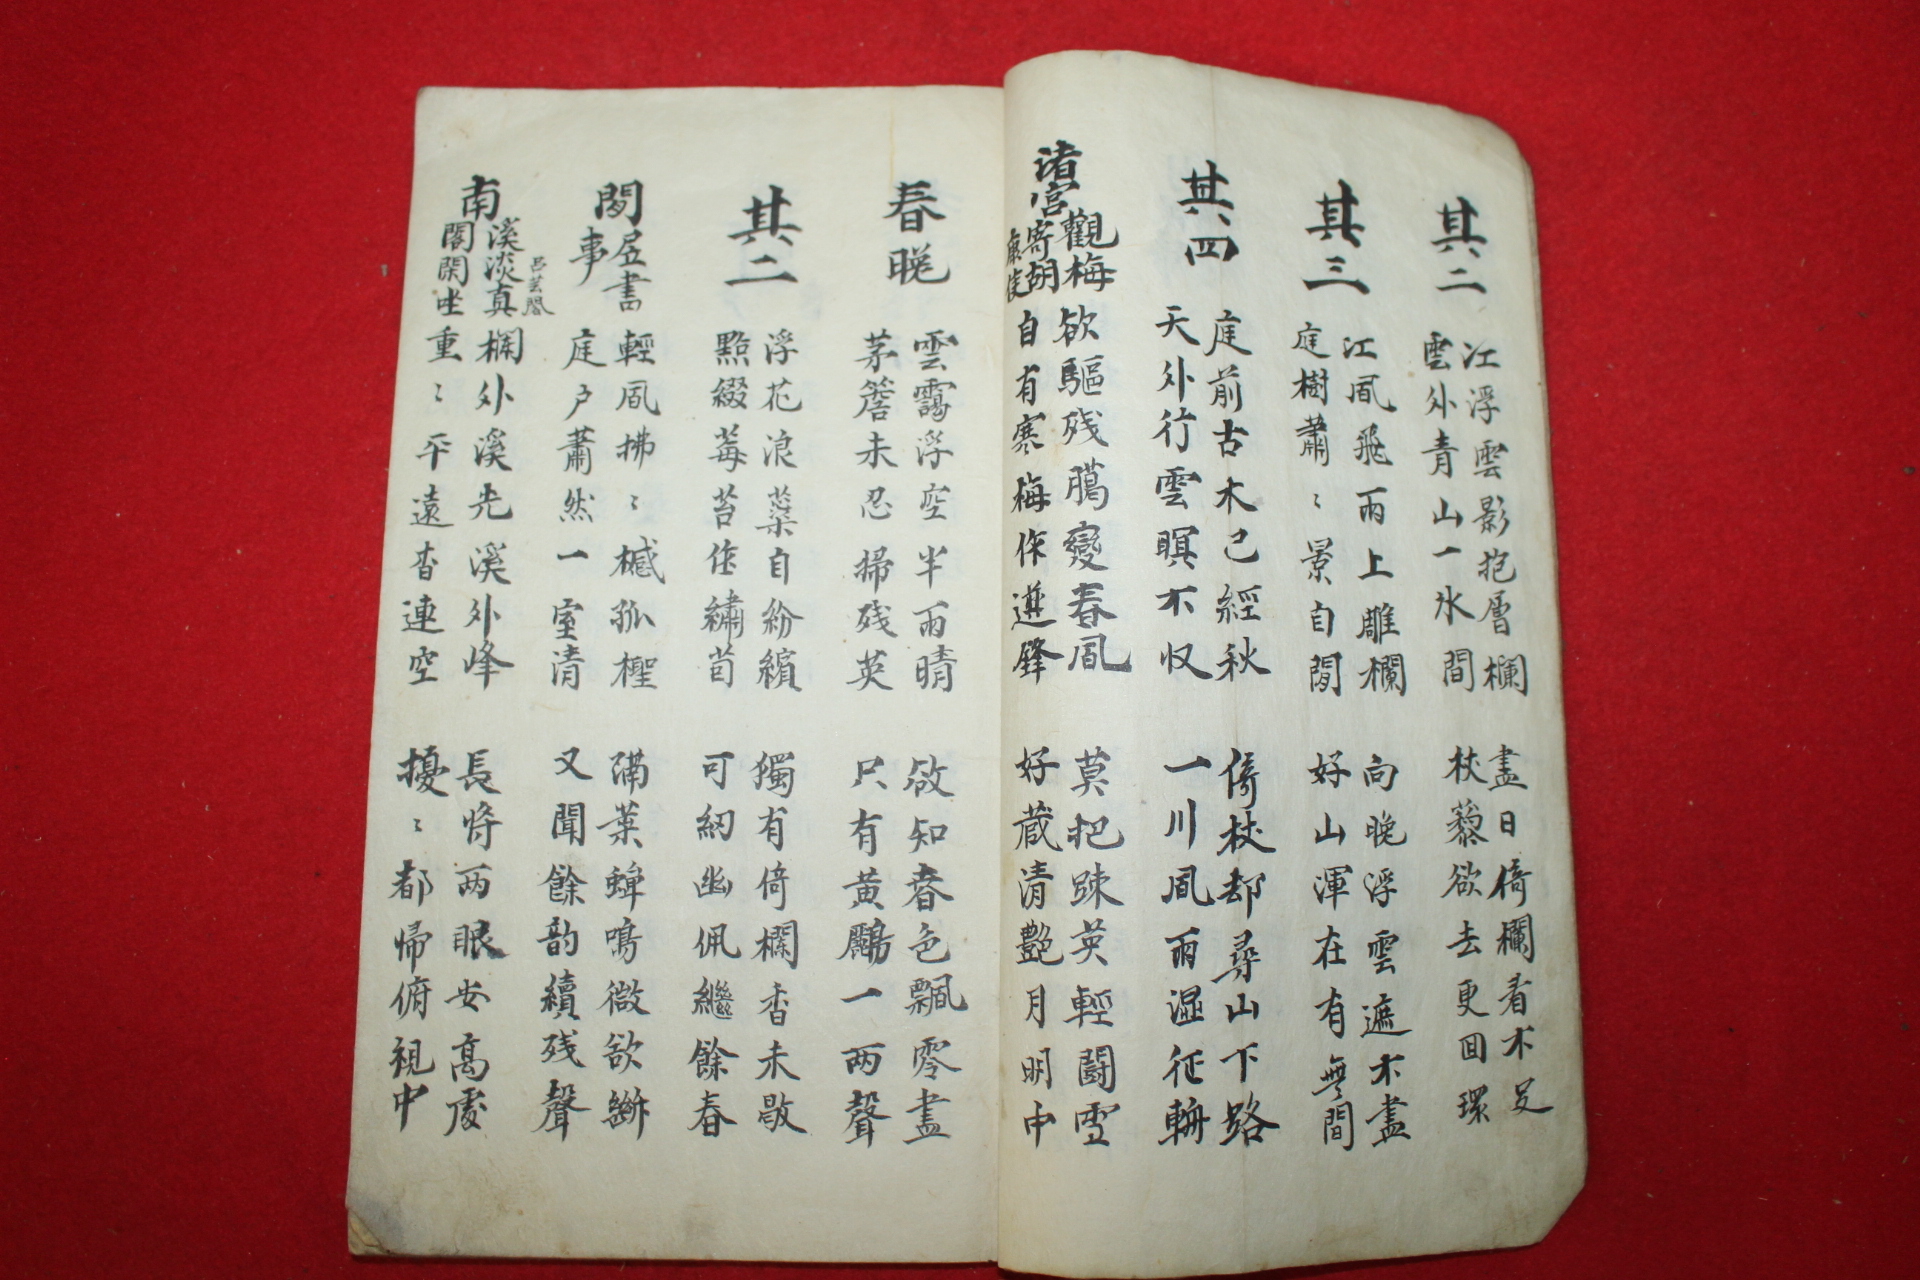 其二
江浮雲影抱層欄
雲外青山一水間
盡日倚欄看不足
杖藜欲去更回環
其三
江風飛雨上雕欄
庭樹蕭〻景自閒
向晚浮雲遮不盡
好山渾在有無間
其四
庭前古木已經秋
天外行雲暝不収
倚杖却尋山下路
一川風雨濕征輈
渚宮觀梅寄胡康侯
欲驅残臈變春風
自有寒梅作選鋒
莫把踈英輕闘雪
好蔵清艷月明中
春晚
雲靄浮空半雨晴
茅簷未忍掃残英
啟知春色飄零盡
只有黃鸝一两聲
其二
浮花浪蘂自紛繽
點綴莓苔作繡茵
獨有倚欄香未歇
可紉幽佩繼餘春
閒居書事
輕風拂〻撼孤檉
庭户蕭然一室清
隔葉蟬鳴微欲斷
又聞餘韵續残聲
南溪淡真閣閑坐
呂芸閣
欄外溪光溪外峰
重〻平遠杳連空
長将两眼安高處
擾〻都帰俯視中